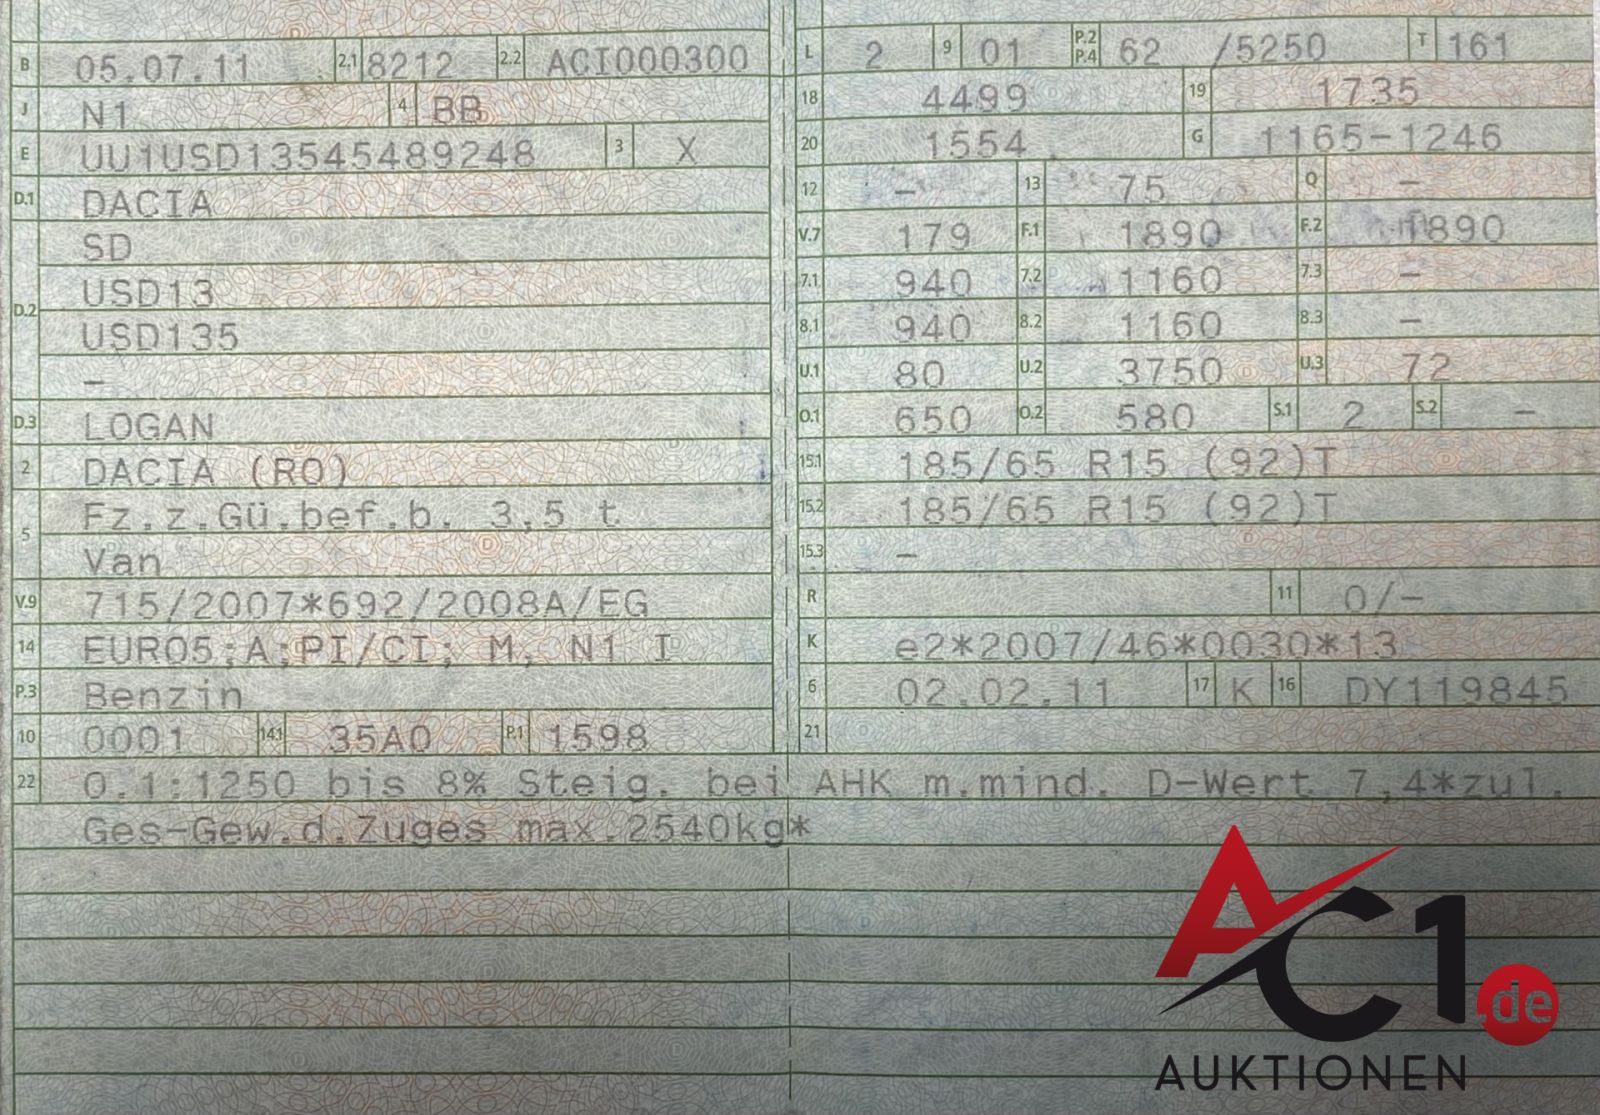 B 05.07.11 2.1 8212 2.2 ACI000300
J N1 4 BB
E UU1USD13545489248 3 X
D.1 DACIA
SD
USD13
D.2
USD135
–
D.3 LOGAN
2 DACIA (RO)
Fz.z.Gü.bef.b. 3,5 t
5
Van
V.9 715/2007*692/2008A/EG
14 EURO5;A;PI/CI; M, N1 I
P.3 Benzin
10 0001 14.1 35A0 P.1 1598
L 2 9 01 P.2 P.4 62 /5250 T 161
18 4499 19 1735
20 1554 G 1165-1246
12 – 13 75 Q –
V.7 179 F.1 1890 F.2 1890
7.1 940 7.2 1160 7.3 –
8.1 940 8.2 1160 8.3 –
U.1 80 U.2 3750 U.3 72
O.1 650 O.2 580 S.1 2 S.2 –
15.1 185/65 R15 (92)T
15.2 185/65 R15 (92)T
15.3 –
R 11 0/–
K e2*2007/46*0030*13
6 02.02.11 17 K 16 DY119845
21
22 O.1:1250 bis 8% Steig. bei AHK m.mind. D-Wert 7,4*zul.
Ges-Gew.d.Zuges max.2540kg*
AC1.de
AUKTIONEN